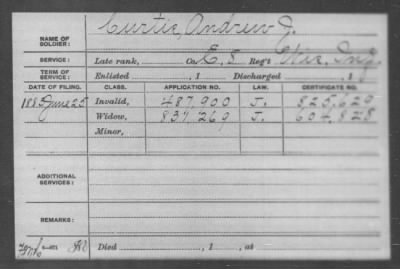 NAME OF SOLDIER: Curtis, Andrew J.
SERVICE: Late rank, Co. E, 5 Reg't Wis. Inf.
TERM OF SERVICE: Enlisted , 1 Discharged , 1
DATE OF FILING. CLASS. APPLICATION NO. LAW. CERTIFICATE NO.
1883 June 25 Invalid, 487,900 J. 825,629
Widow, 837,269 J. 604,828
Minor,
ADDITIONAL SERVICES:
REMARKS:
Died , 1 , at